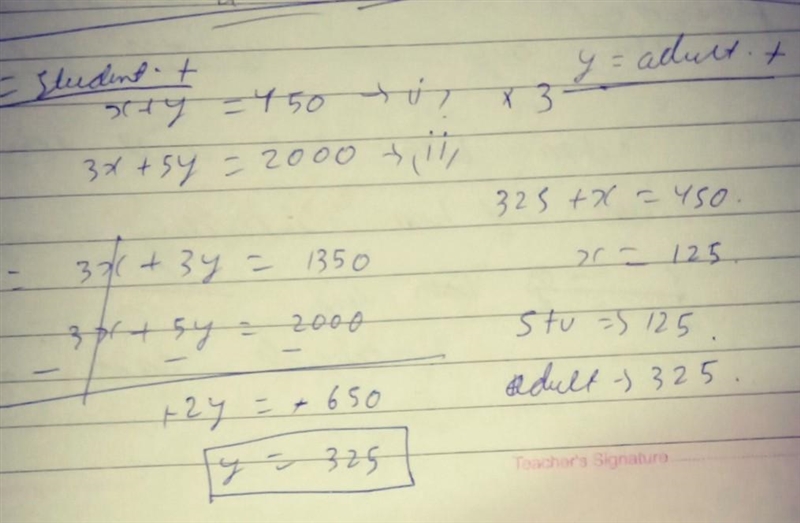 = Student. t
y = adult. t
x+y = 450 → i) × 3
3x + 5y = 2000 → (ii)
325 + x = 450.
= 3x + 3y = 1350
x = 125.
- 3x + 5y = 2000
- -
Stu => 125.
+2y = + 650
adult → 325.
y = 325
Teacher's Signature